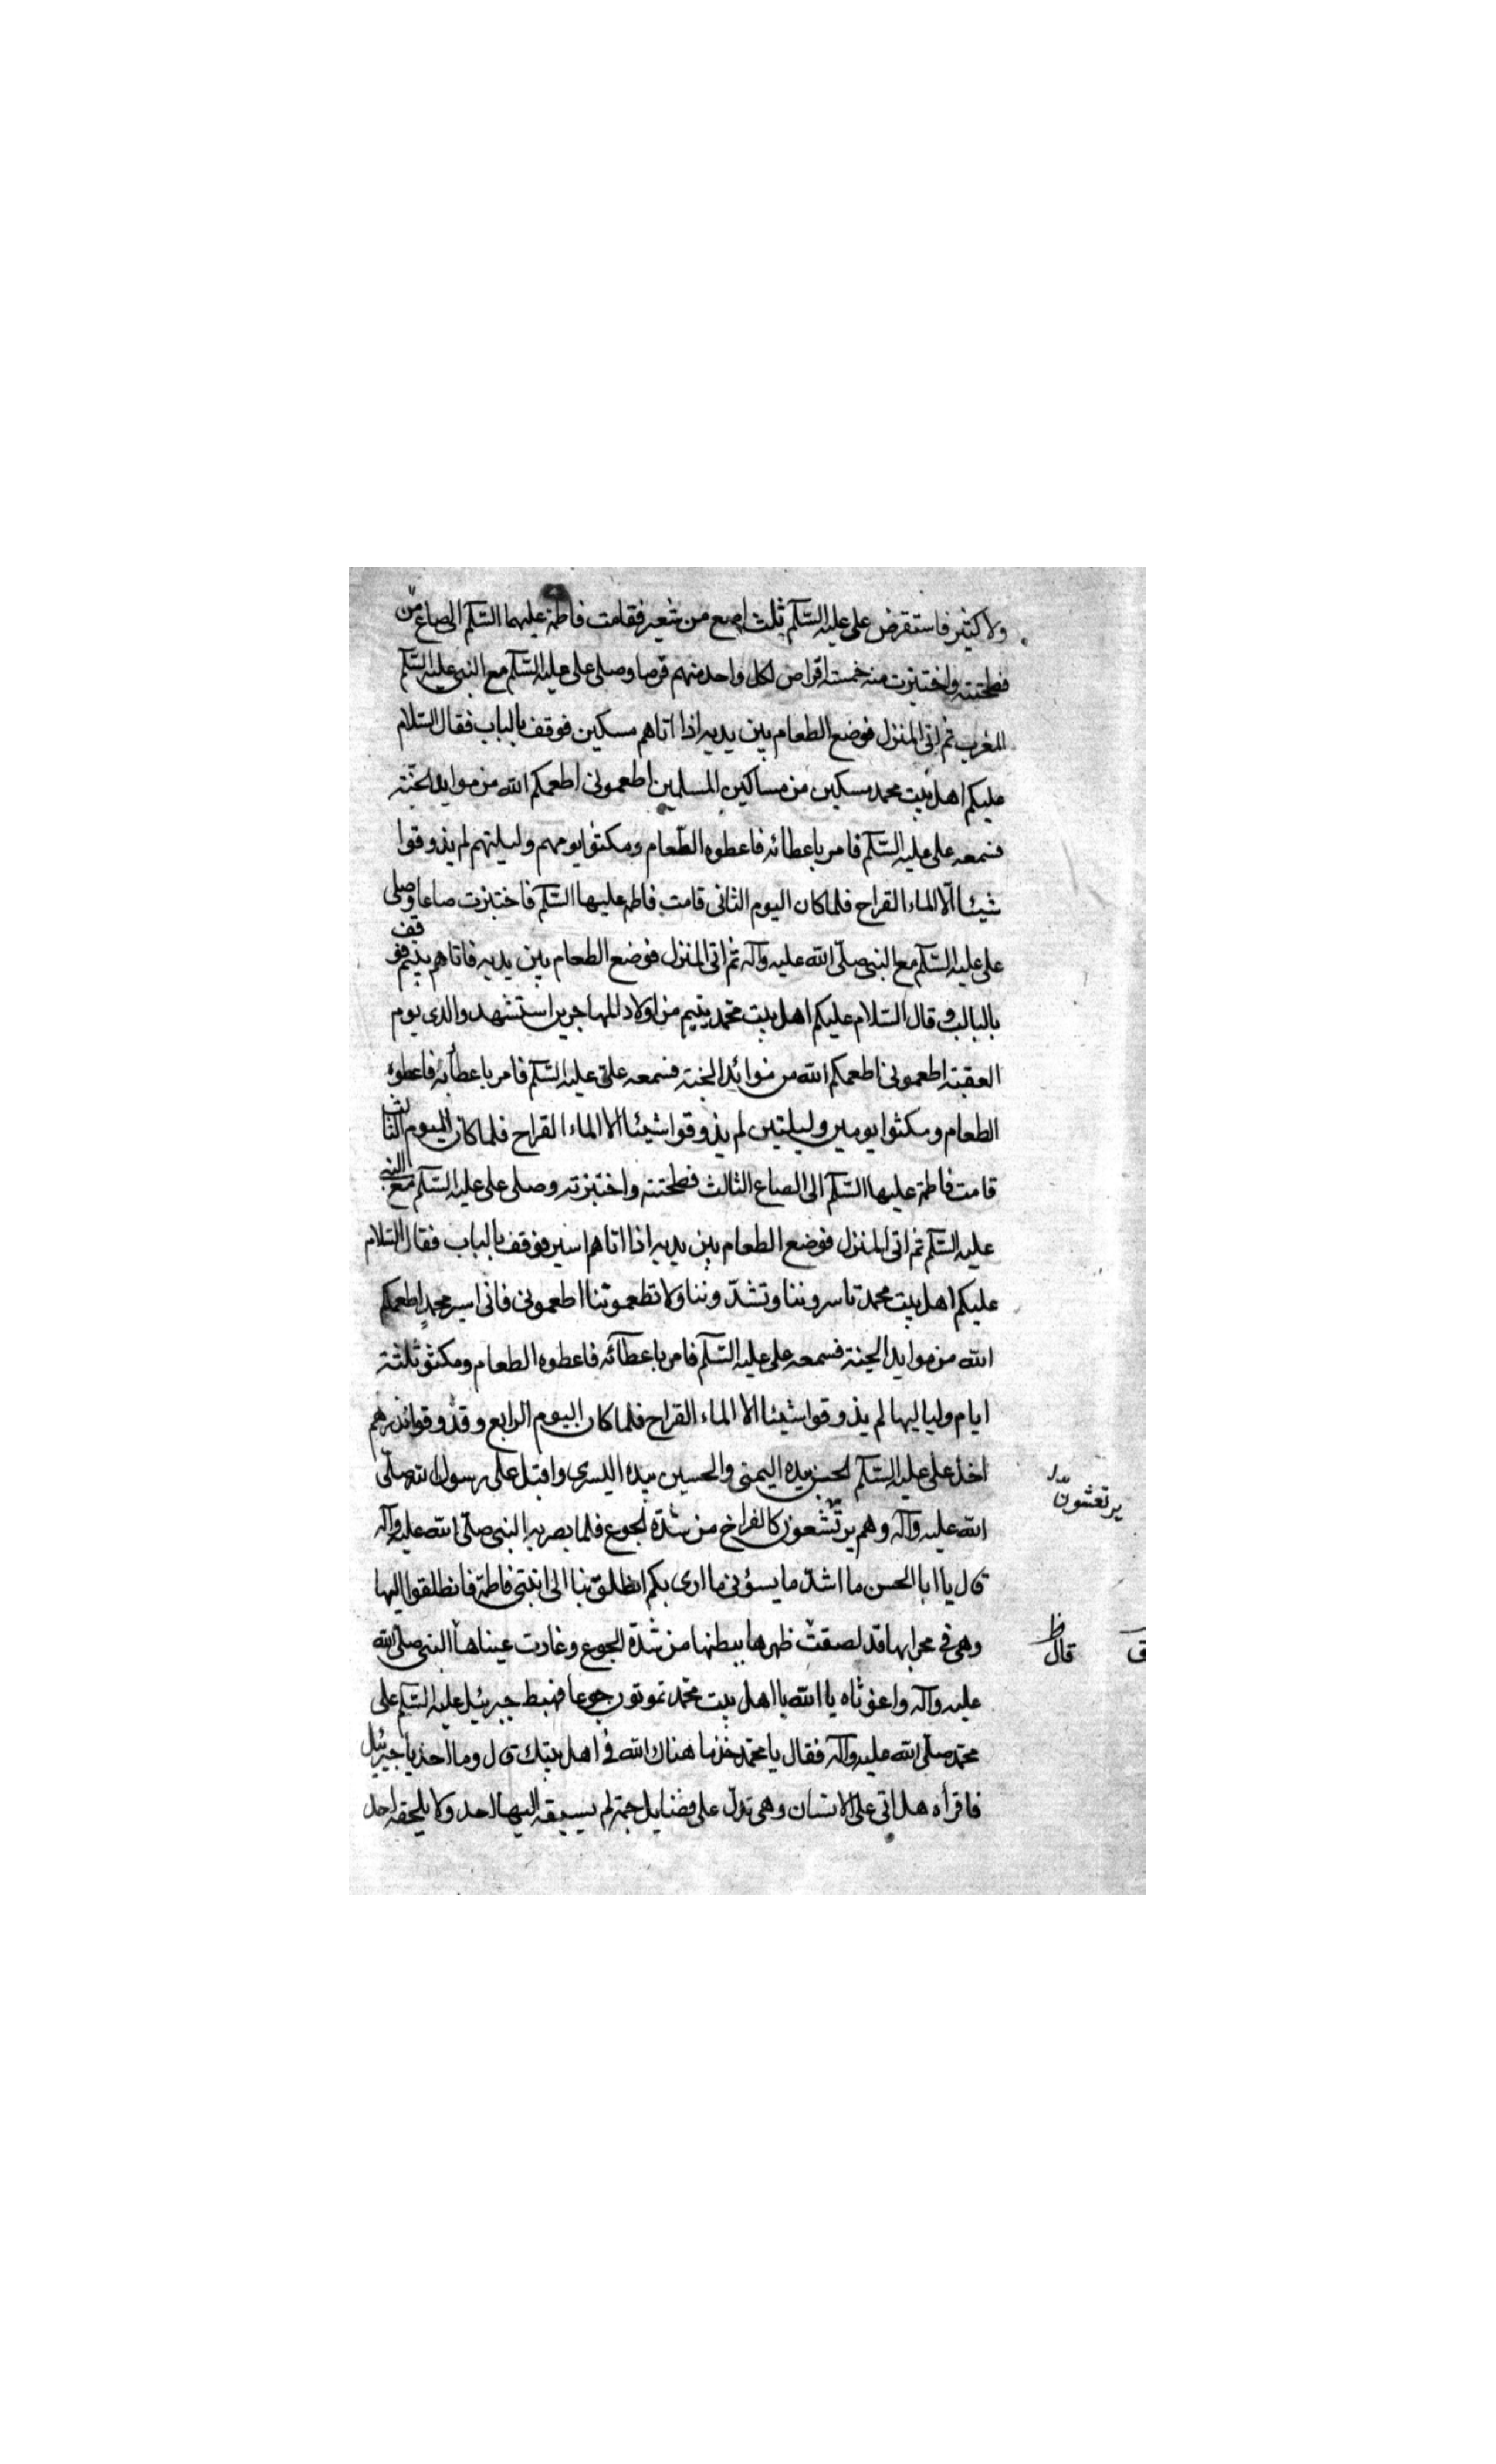 ولا كثير فاستقرض على عليه السّلم ثلث اصع من شعير فقامت فاطمة عليهما السّلم الى صاع من
فطحنته واختبزت منه خمسته اقراص لكل واحد منهم قرصا وصلى على عليه السّلم مع النبي عليه السّلم
المغرب ثم اتى المنزل فوضع الطعام بين يديه اذا اتاهم مسكين فوقف بالباب فقال السّلام
عليكم اهل بيت محمد مسكين من مساكين المسلمين اطعمونى اطعمكم الله من موايد الجنّة
فسمعه على عليه السّلم فامر باعطائه فاعطوه الطّعام ومكثوا يومهم وليلتهم لم يذوقوا
شيئا الّا الماء القراح فلما كان اليوم الثانى قامت فاطمه عليها السّلم فاختبزت صاعا وصلى
على عليه السّلم مع النبي صلّى الله عليه وآله ثم اتى المنزل فوضع الطعام بين يديه فاتاهم يتيم فوقف
بالباب وقال السّلام عليكم اهل بيت محمّد يتيم من اولاد المهاجرين استشهد والدى يوم
العقبة اطعمونى اطعمكم الله من موائد الجنة فسمعه علىّ عليه السّلم فامر باعطآئه فاعطوه
الطعام ومكثوا يومين وليلتين لم يذوقوا شيئا الا الماء القراح فلما كان اليوم الثالث
قامت فاطمة عليها السّلم الى الصاع الثالث فطحنته واختبزته وصلى على عليه السّلم مع النبي
عليه السّلم ثم اتى المنزل فوضع الطعام بين يديه اذا اتاهم اسير فوقف بالباب فقال السّلام
عليكم اهل بيت محمد تاسروننا وتشدّوننا ولا تطعموننا اطعمونى فانى اسير محمدٍ اطعمكم
الله من موايد الجنة فسمعه على عليه السّلم فامر باعطآئه فاعطوه الطعام ومكثو ثلثة
ايام ولياليها لم يذوقوا شيئا الا الماء القراح فلما كان اليوم الرابع وقد وقوا نذرهم
اخذ على عليه السّلم الحسن بيده اليمنى والحسين بيده اليسرى واقبل على رسول الله صلّى
الله عليه وآله وهم يرتشعون كالفراخ من شدّة الجوع فلما بصر به النبى صلّى الله عليه وآله
يرتعشون
قال يا ابا الحسن ما اشدّ ما يسؤنى ما ارى بكم انطلق بنا الى ابنتى فاطمة فانطلقوا اليها
وهى فى محرابها قد لصقت ظهرها ببطنها من شدّة الجوع وغارت عيناها النبى صلى الله
قال ظ
عليه وآله واغوثاه يا الله يا اهل بيت محمّد تموتون جوعا فهبط جبرئيل عليه السّلم على
محمّد صلّى الله عليه وآله فقال يا محمّد خذ ما هناك الله فى اهل بيتك قال وما اخذ يا جبرئيل
فاقرأه هل اتى على الانسان وهى تدلّ على فضايل جمة لم يسبقه اليها احد ولا يلحقه احد